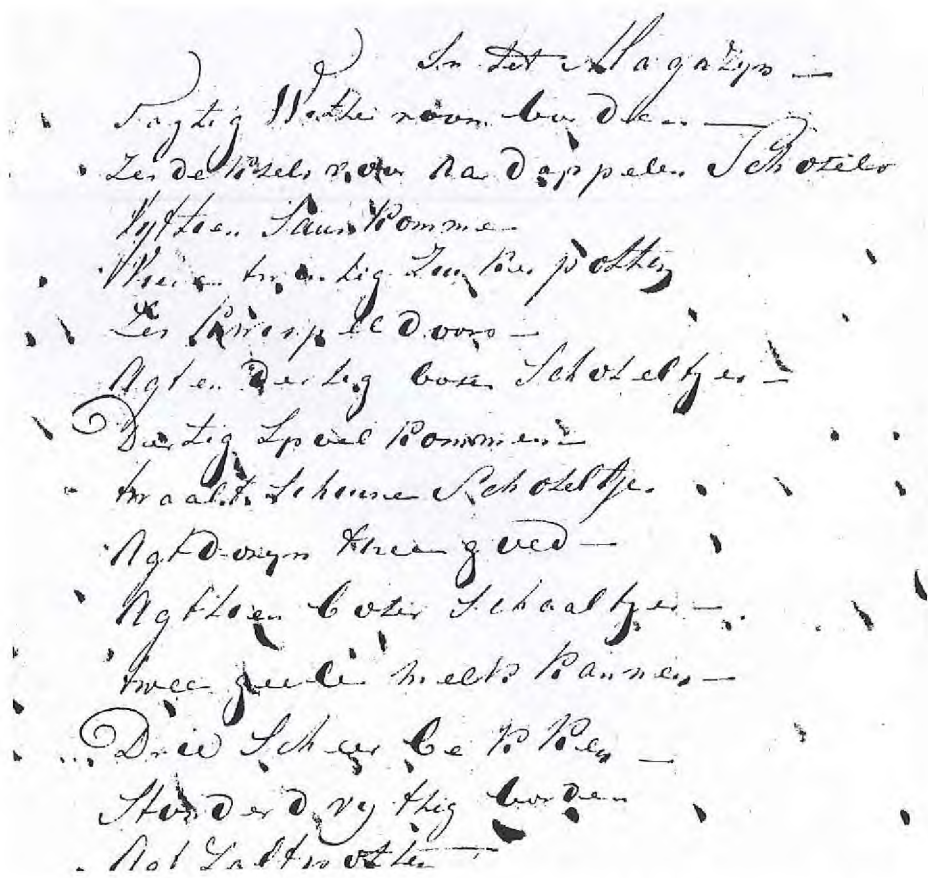 In het Magazijn —
Tagtig Witte room borden —
Zes deksels van Aardappelen Schotels
Vyftien Saus komme
Vier en twintig Zuiker potten
Zes kwispeldoors —
Agt en Dertig boter Schoteltjes —
Dertig Spoel kommen —
twaalf Scheune Schoteltje
Agt Dozyn thee goed —
Agttien boter Schaaltjes —
twee geele melk kannen —
Drie Scheer bekken —
Honderd vyftig borden
Agt Saltvoten